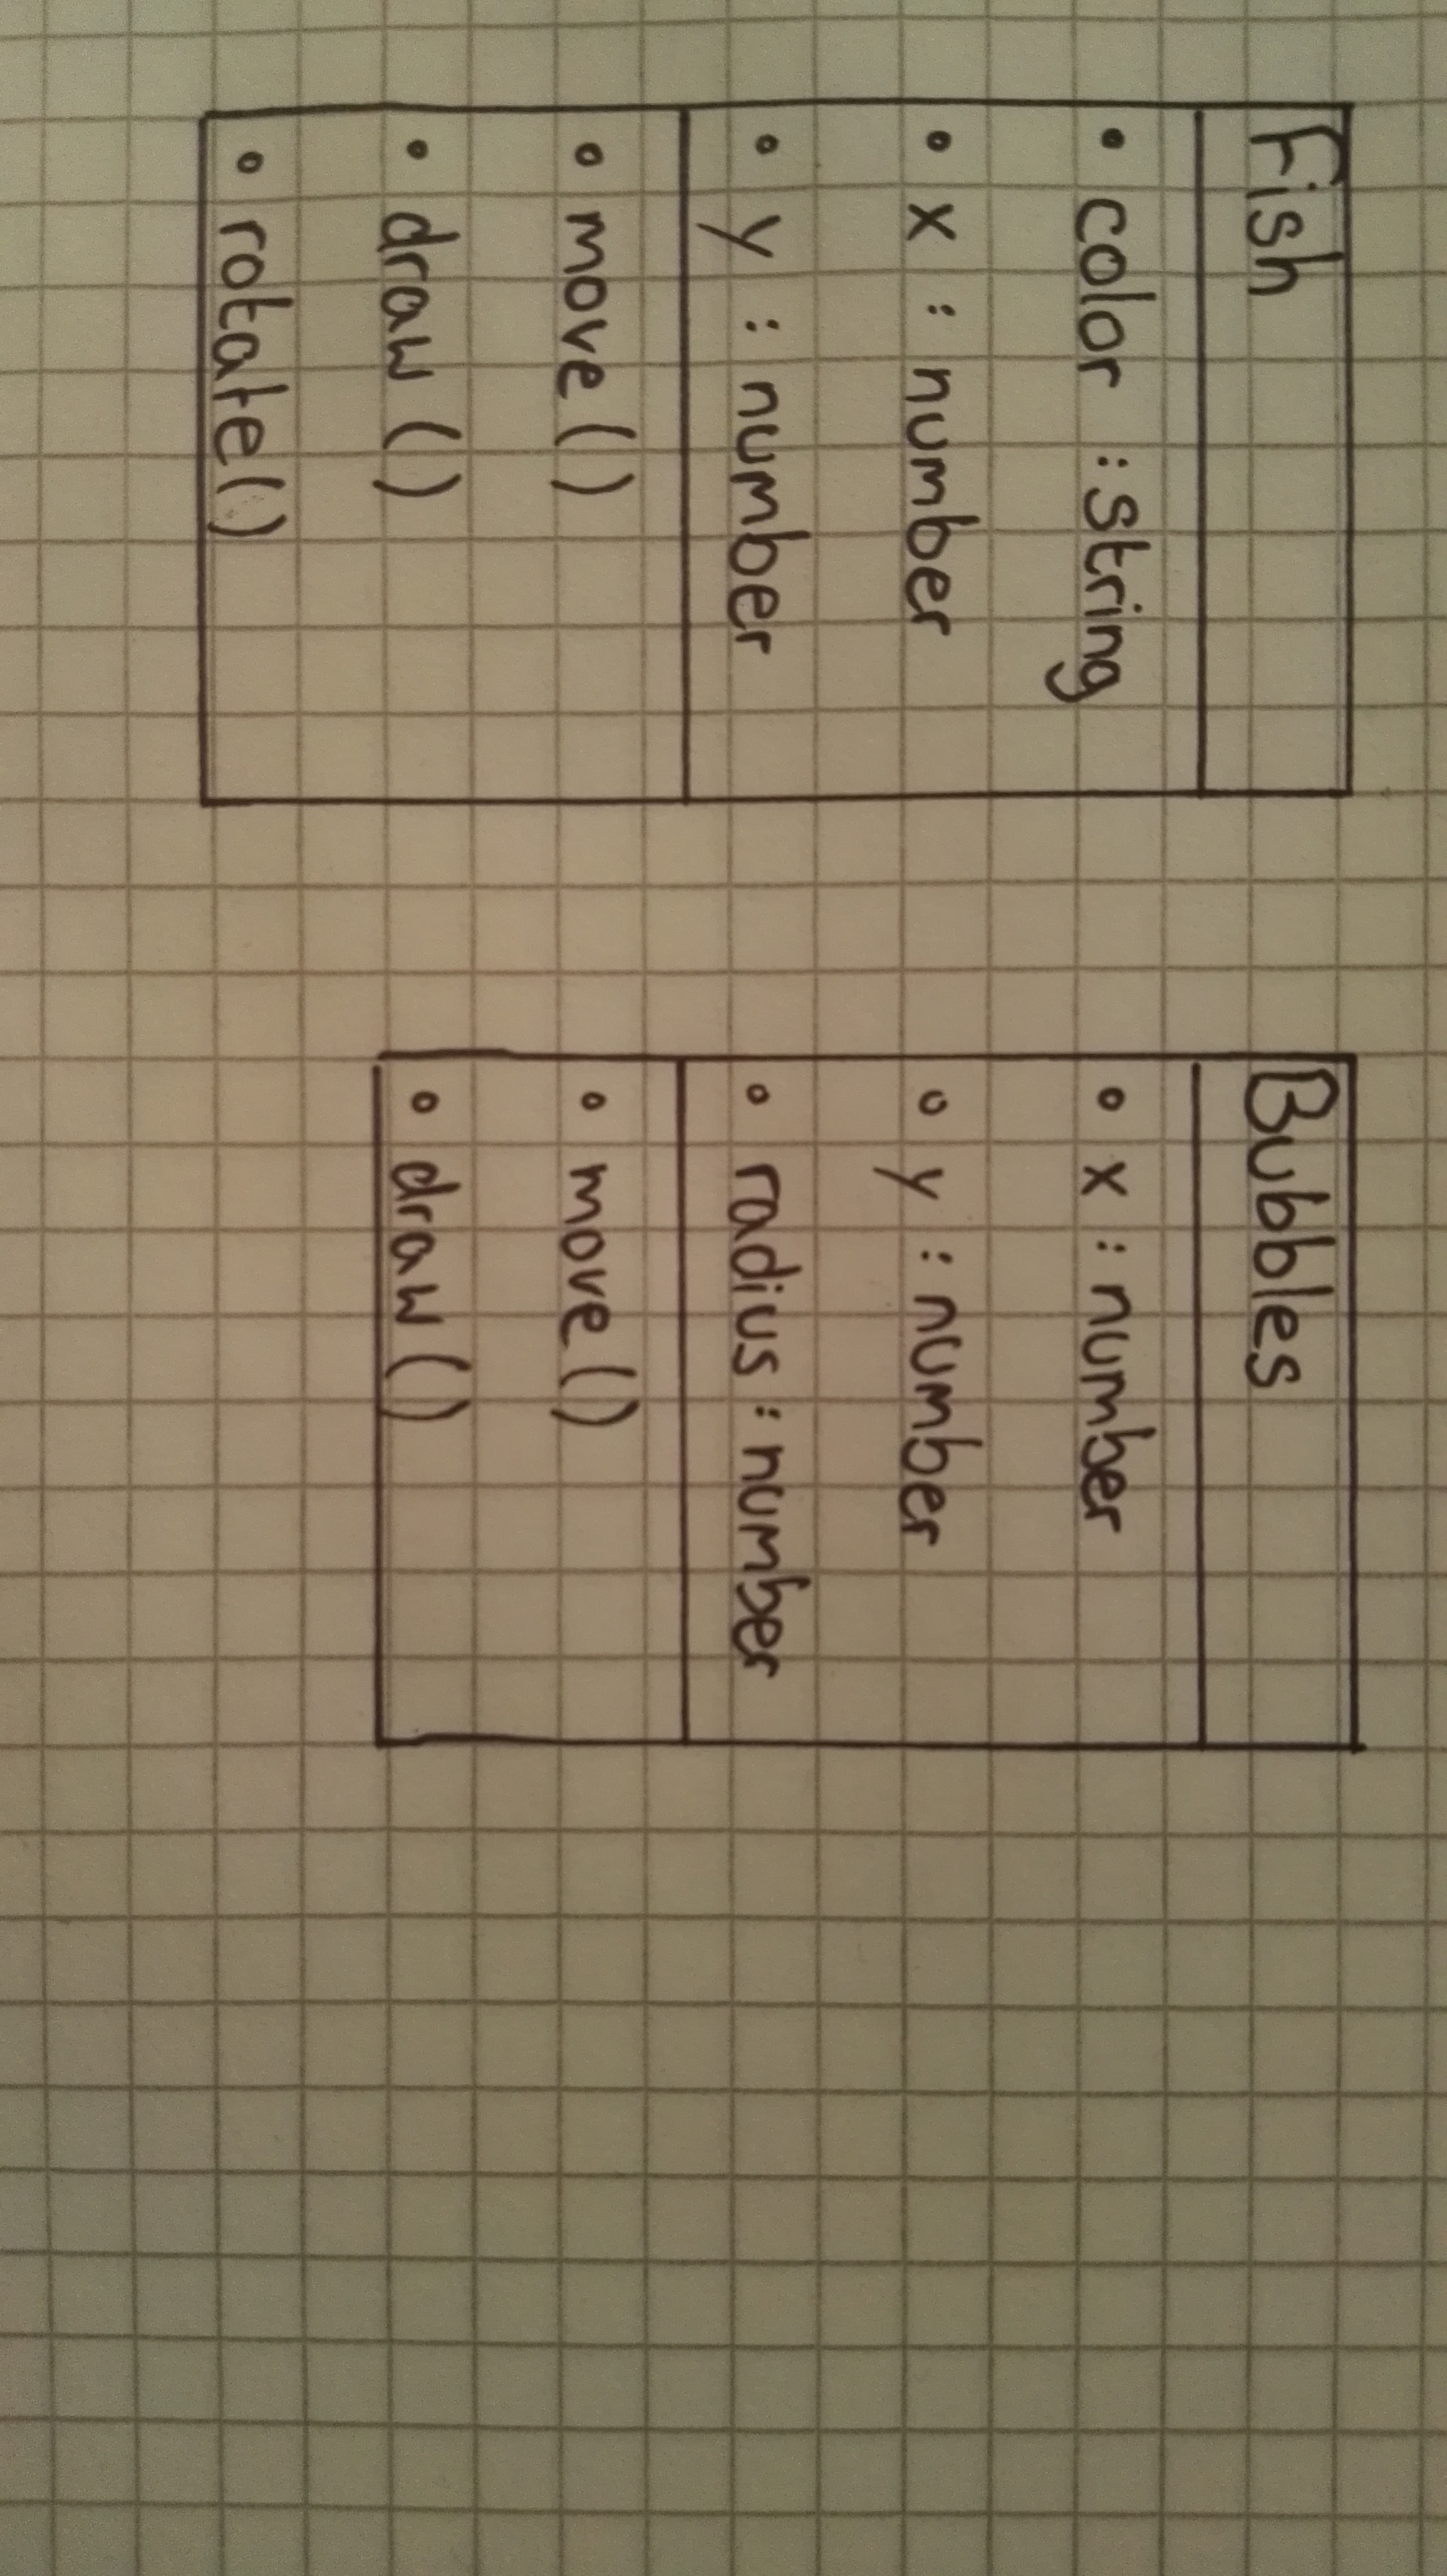 Fish
• color : string
• x : number
• y : number
• move()
• draw()
• rotate()
Bubbles
• x : number
• y : number
• radius : number
• move()
• draw()